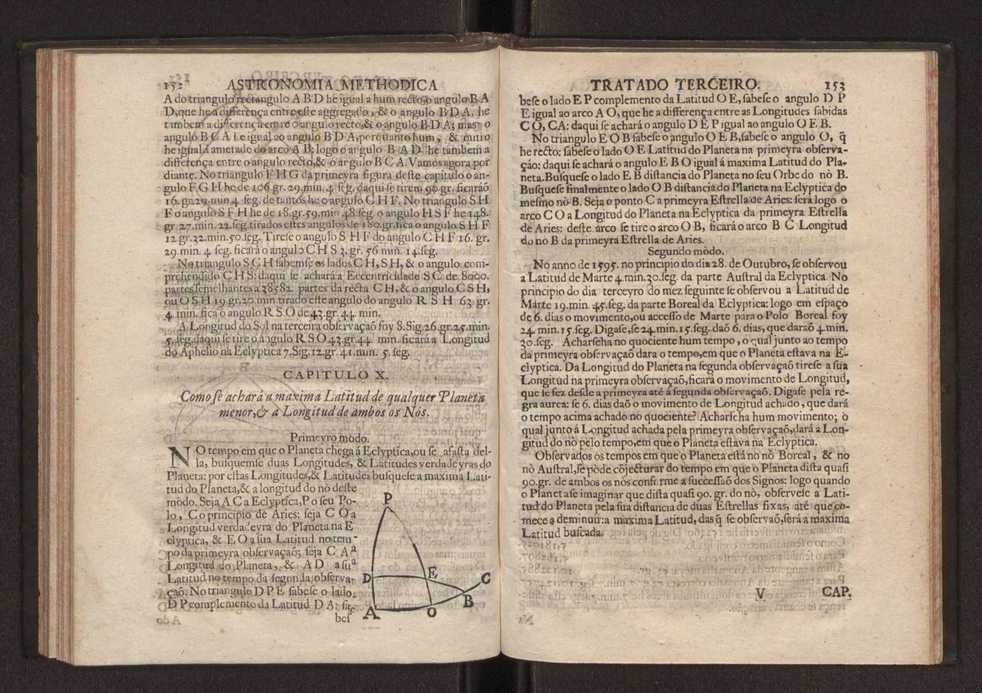 152 ASTRONOMIA METHODICA
A do triangulo rectangulo A B D he igual a hum recto, o angulo B A
D, que he a differença entre este aggregado, & o angulo B D A, he
tambem a differença entre o angulo recto, & o angulo B D A; mas o
angulo B C A he igual ao angulo B D A, per quanto hum, & outro
he igual á ametade do arco A B; logo o angulo B A D he tambem a
differença entre o angulo recto, & o angulo B C A. Vamos agora por
diante. No triangulo F H G da primeyra figura deste capitulo o an-
gulo F G H he de 106. gr. 29. min. 4 seg. daqui se tirem 90. gr. ficaráõ
16. gr. 29. min. 4. seg. de tantos he o angulo C H F. No triangulo S H
F o angulo S F H he de 18. gr. 59. min. 48. seg. o angulo H S F he 148.
gr. 27. min. 22. seg. tirados estes angulos de 180. gr. fica o angulo S H F
12. gr. 32. min. 50. seg. Tirese o angulo S H F do angulo C H F 16. gr.
29. min. 4. seg. ficará o angulo C H S 3. gr. 56. min. 14. seg.
No triangulo S C H sabemse os lados C H, S H, & o angulo com-
prehendido C H S: daqui se achará a Eccentricidade S C de
partes semelhantes a 38582. partes da recta C H, & o angulo C S H,
ou O S H 19. gr. 20. min. tirado este angulo do angulo R S H 63. gr.
4. min. fica o angulo R S O de 43. gr. 44. min.
A Longitud do Sol na terceira observaçaõ foy 8. Sig. 26. gr. 25. min.
5. seg. daqui se tire o angulo R S O 43. gr. 44. min. ficará a Longitud
do Aphelio na Eclyptica 7. Sig. 12. gr. 41. min. 5. seg.
CAPITULO X.
Como se achará a maxima Latitud de qualquer Planeta
menor, & a Longitud de ambos os Nós.
Primeyro módo.
NO tempo em que o Planeta chega á Eclyptica, ou se afasta del-
la, busquemse duas Longitudes, & Latitudes verdadeyras do
Planeta: por estas Longitudes, & Latitudes busquese a maxima Lati-
tud do Planeta, & a longitud do nó deste
módo. Seja A C a Eclyptica, P o seu Po-
lo, C o principio de Aries: seja C O a
Longitud verdadeyra do Planeta na E
clyptica, & E O a sua Latitud no tem-
po da primeyra observaçaõ; seja C A a
Longitud do Planeta, & A D a sua
Latitud no tempo da segunda observa-
çaõ: No triangulo D P E sabese o lado
D P complemento da Latitud D A: sa-
bes
P
D E C
A O B
TRATADO TERCEIRO. 153
bese o lado E P complemento da Latitud O E, sabese o angulo D P
E igual ao arco A O, que he a differença entre as Longitudes sabidas
C O, C A: daqui se achará o angulo D E P igual ao angulo O E B.
No triangulo E O B sabese o angulo O E B, sabese o angulo O, q̃
he recto: sabese o lado O E Latitud do Planeta na primeyra observa-
çaõ: daqui se achará o angulo E B O igual á maxima Latitud do Pla-
neta. Busquese o lado E B distancia do Planeta no seu Orbe do nó B.
Busquese finalmente o lado O B distancia do Planeta na Eclyptica do
mesmo nó B. Seja o ponto C a primeyra Estrella de Aries: será logo o
arco C O a Longitud do Planeta na Eclyptica da primeyra Estrella
de Aries: deste arco se tire o arco O B, ficará o arco B C Longitud
do nó B da primeyra Estrella de Aries.
Segundo módo.
No anno de 1595. no principio do dia 28. de Outubro, se observou
a Latitud de Marte 4. min. 30. seg. da parte Austral da Eclyptica No
principio do dia terceyro do mez seguinte se observou a Latitud de
Marte 19. min. 45. seg. da parte Boreal da Eclyptica: logo em espaço
de 6. dias o movimento, ou accesso de Marte para o Polo Boreal foy
24. min. 15. seg. Digase, se 24. min. 15. seg. daõ 6. dias, que daráõ 4. min.
30. seg. Acharseha no quociente hum tempo, o qual junto ao tempo
da primeyra observaçaõ dara o tempo, em que o Planeta estava na E-
clyptica. Da Longitud do Planeta na segunda observaçaõ tirese a sua
Longitud na primeyra observaçaõ, ficará o movimento de Longitud,
que se fez desde a primeyra até á segunda observaçaõ. Digase pela re-
gra aurea: se 6. dias daõ o movimento de Longitud achado, que dará
o tempo acima achado no quociente? Acharseha hum movimento; o
qual junto á Longitud achada pela primeyra observaçaõ, dará a Lon-
gitud do nó pelo tempo, em que o Planeta estava na Eclyptica.
Observados os tempos em que o Planeta está no nó Boreal, & no
nó Austral, se póde cõjecturar do tempo em que o Planeta dista quasi
90. gr. de ambos os nós conforme a successaõ dos Signos: logo quando
o Planeta se imaginar que dista quasi 90. gr. do nó, observese a Lati-
tud do Planeta pela sua distancia de duas Estrellas fixas, até que co-
mece a deminuir: a maxima Latitud, das q̃ se observaõ, será a maxima
Latitud buscada.
V CAP.